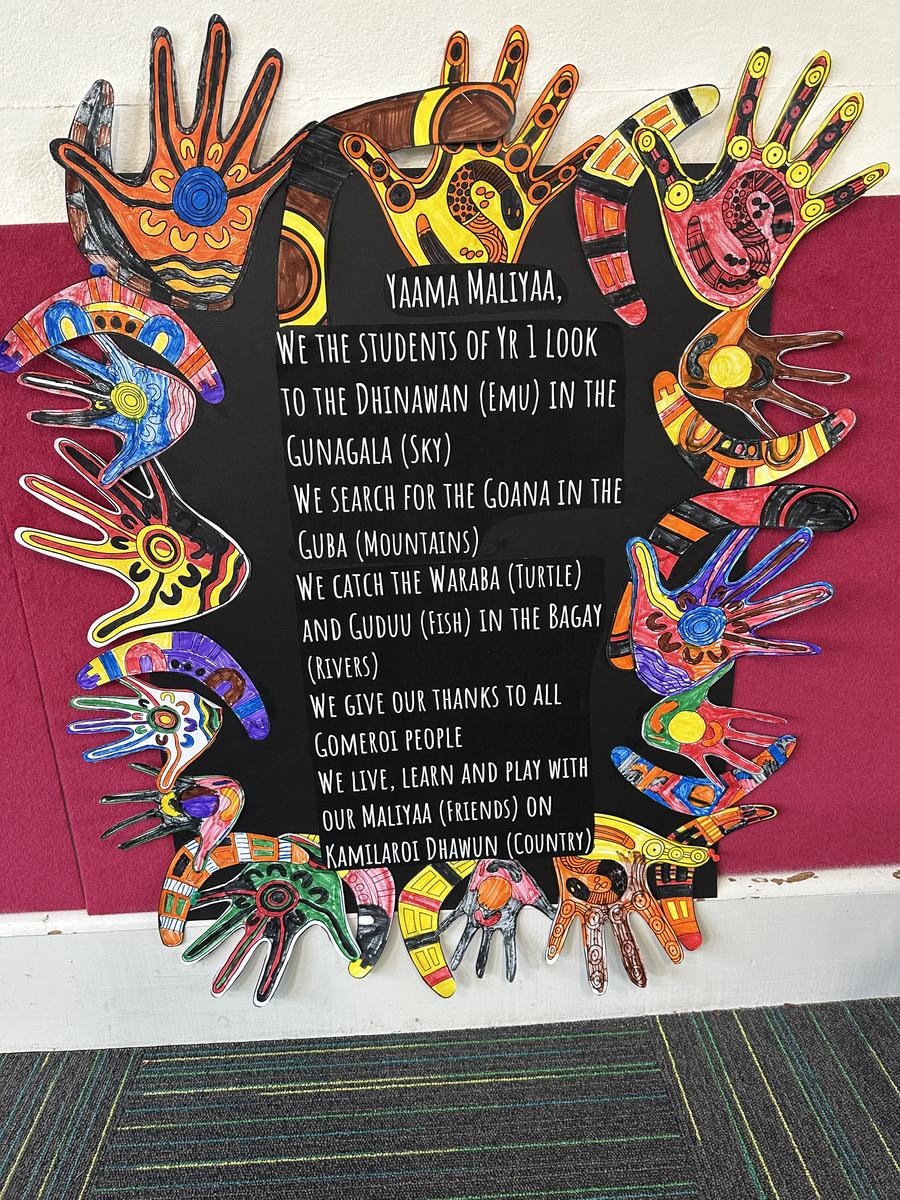 Yaama Maliyaa,
We the students of Yr 1 look
to the Dhinawan (Emu) in the
Gunagala (Sky)
We search for the Goana in the
Guba (Mountains)
We catch the Waraba (Turtle)
and Guduu (Fish) in the Bagay
(Rivers)
We give our thanks to all
Gomeroi people
We live, learn and play with
our Maliyaa (Friends) on
Kamilaroi Dhawun (Country)